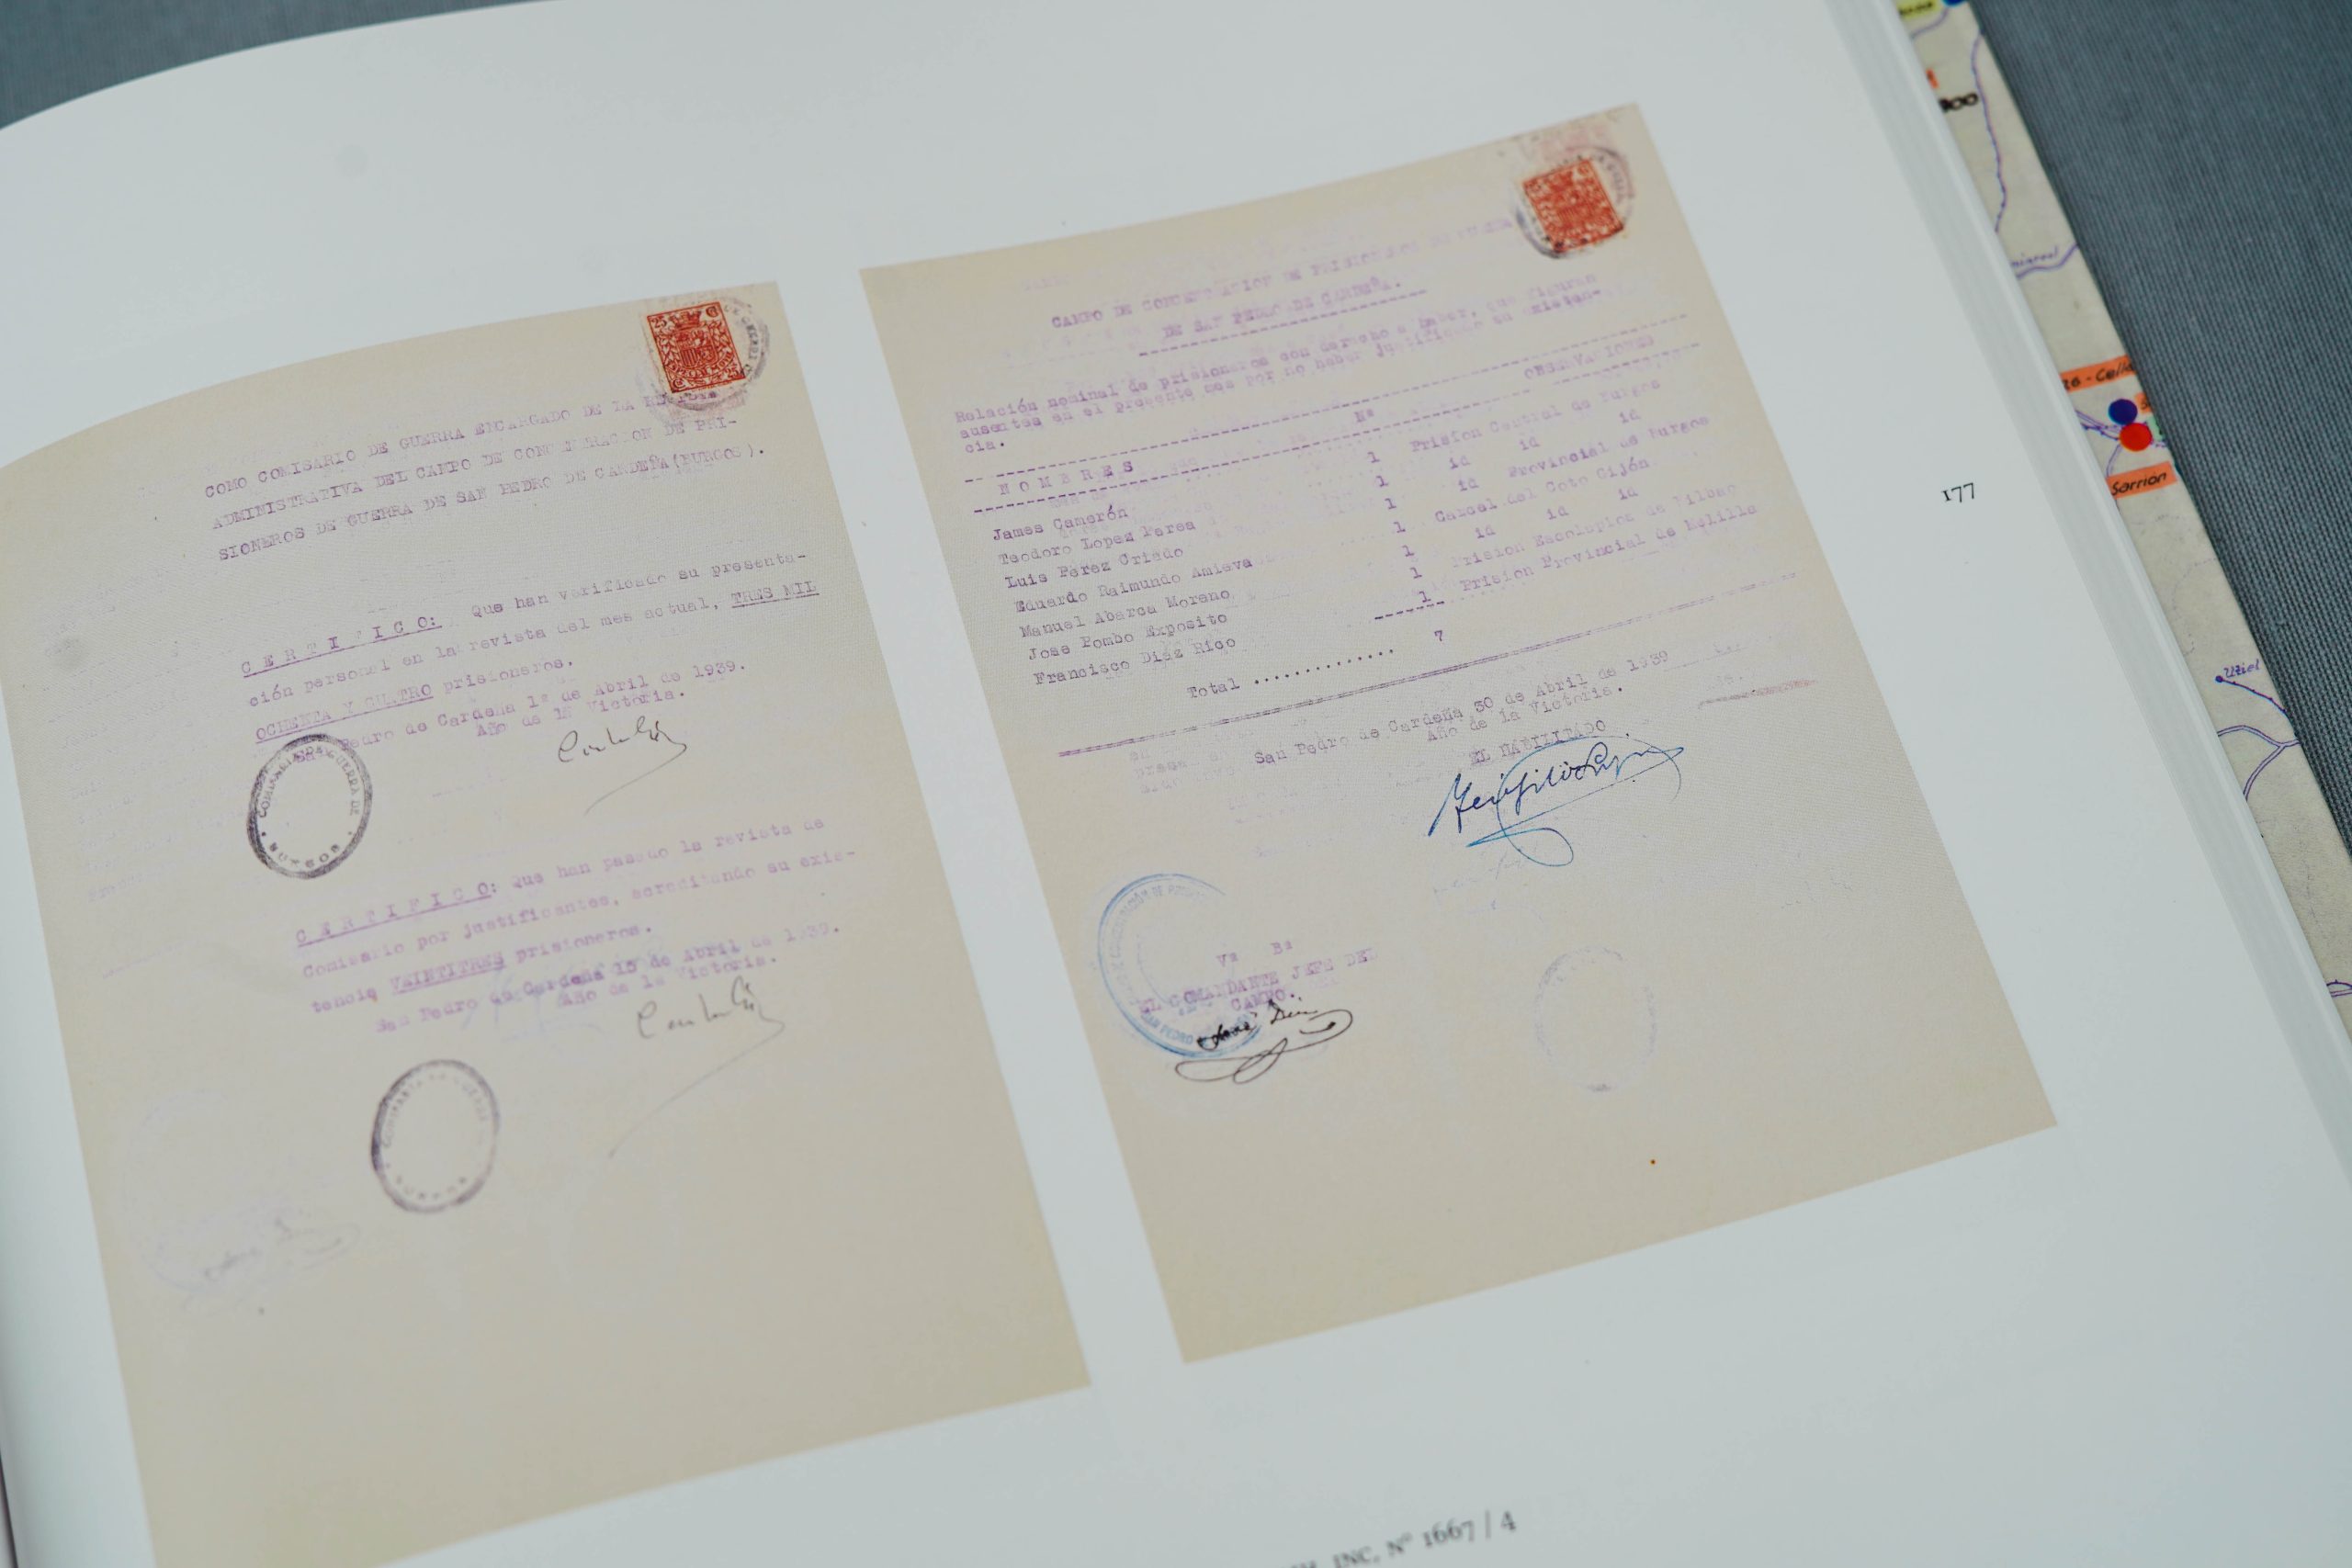 COMO COMISARIO DE GUERRA ENCARGADO DE LA
ADMINISTRATIVA DEL CAMPO DE CONCENTRACION DE PRI-
SIONEROS DE GUERRA DE SAN PEDRO DE CARDEÑA(BURGOS).
C E R T I F I C O: Que han verificado su presenta-
ción personal en la revista del mes actual, TRES MIL
OCHENTA Y CUATRO prisioneros.
San Pedro de Cardeña 1º de Abril de 1939.
Año de la Victoria.
COMISARIA DE GUERRA DE
BURGOS
C E R T I F I C O: Que han pasado la revista de
Comisario por justificantes, acreditando su exis-
tencia VEINTITRES prisioneros.
San Pedro de Cardeña 15 de Abril de 1939.
Año de la Victoria.
COMISARIA DE GUERRA DE
BURGOS
25
CAMPO DE CONCENTRACION DE PRISIONEROS DE GUERRA
DE SAN PEDRO DE CARDEÑA.
Relación nominal de prisioneros con derecho a haber, que figuran
ausentes en el presente mes por no haber justificado su existen-
cia.
N O M B R E S Nº OBSERVACIONES
James Camerón 1 Prision Central de Burgos
Teodoro Lopez Perea 1 id id id
Luis Pérez Criado 1 id Provincial de Burgos
Eduardo Raimundo Amieva 1 Carcel del Coto Gijón
Manuel Abarca Moreno 1 id id id
Jose Pombo Exposito 1 Prision Escolapios de Bilbao
Francisco Diaz Rico 1 Prision Provincial de Melilla
Total .............. 7
San Pedro de Cardeña 30 de Abril de 1939
Año de la Victoria.
EL HABILITADO
Vº Bº
EL COMANDANTE JEFE DEL
CAMPO.
SAN PEDRO
177
INC. Nº 1667 / 4
Sarrion
Utiel